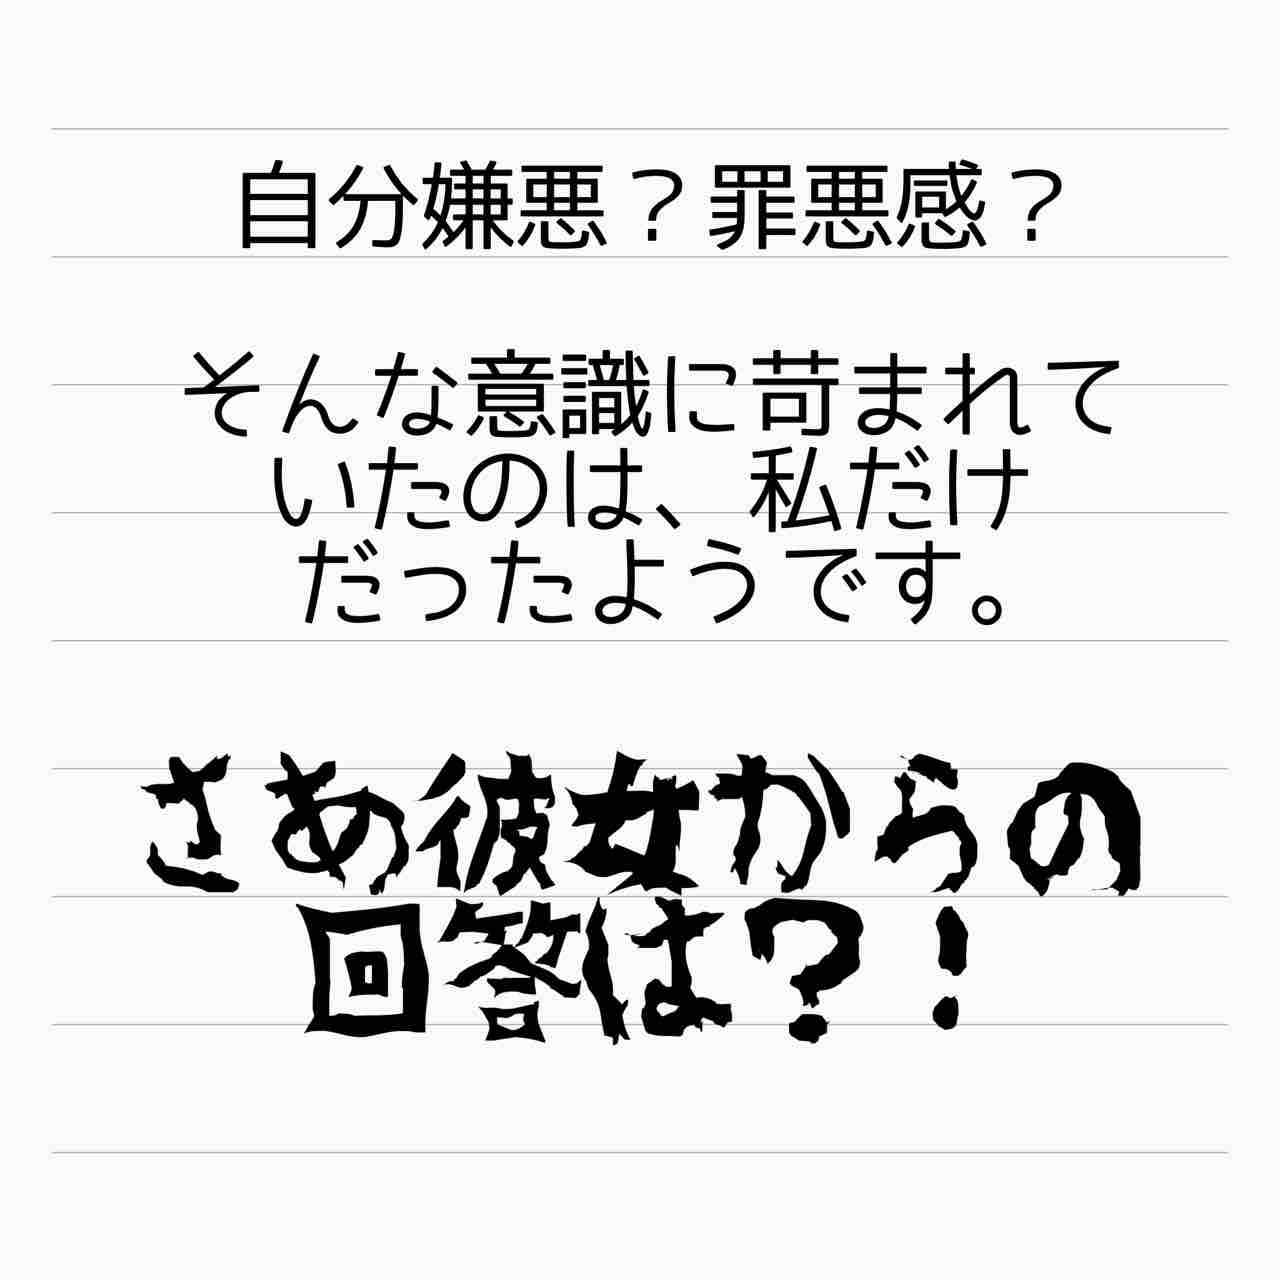 自分嫌悪？罪悪感？
そんな意識に苛まれて
いたのは、私だけ
だったようです。
さあ彼女からの
回答は？！